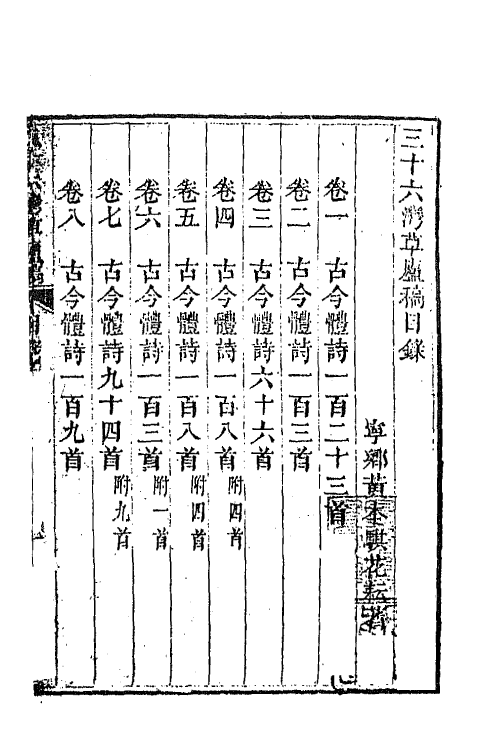 三十六灣草廬稿目錄
寧鄉黃本騏花耘著
卷一 古今體詩一百二十三首
卷二 古今體詩一百三首
卷三 古今體詩六十六首
卷四 古今體詩一百八首 附四首
卷五 古今體詩一百八首 附四首
卷六 古今體詩一百三首 附一首
卷七 古今體詩九十四首 附九首
卷八 古今體詩一百九首